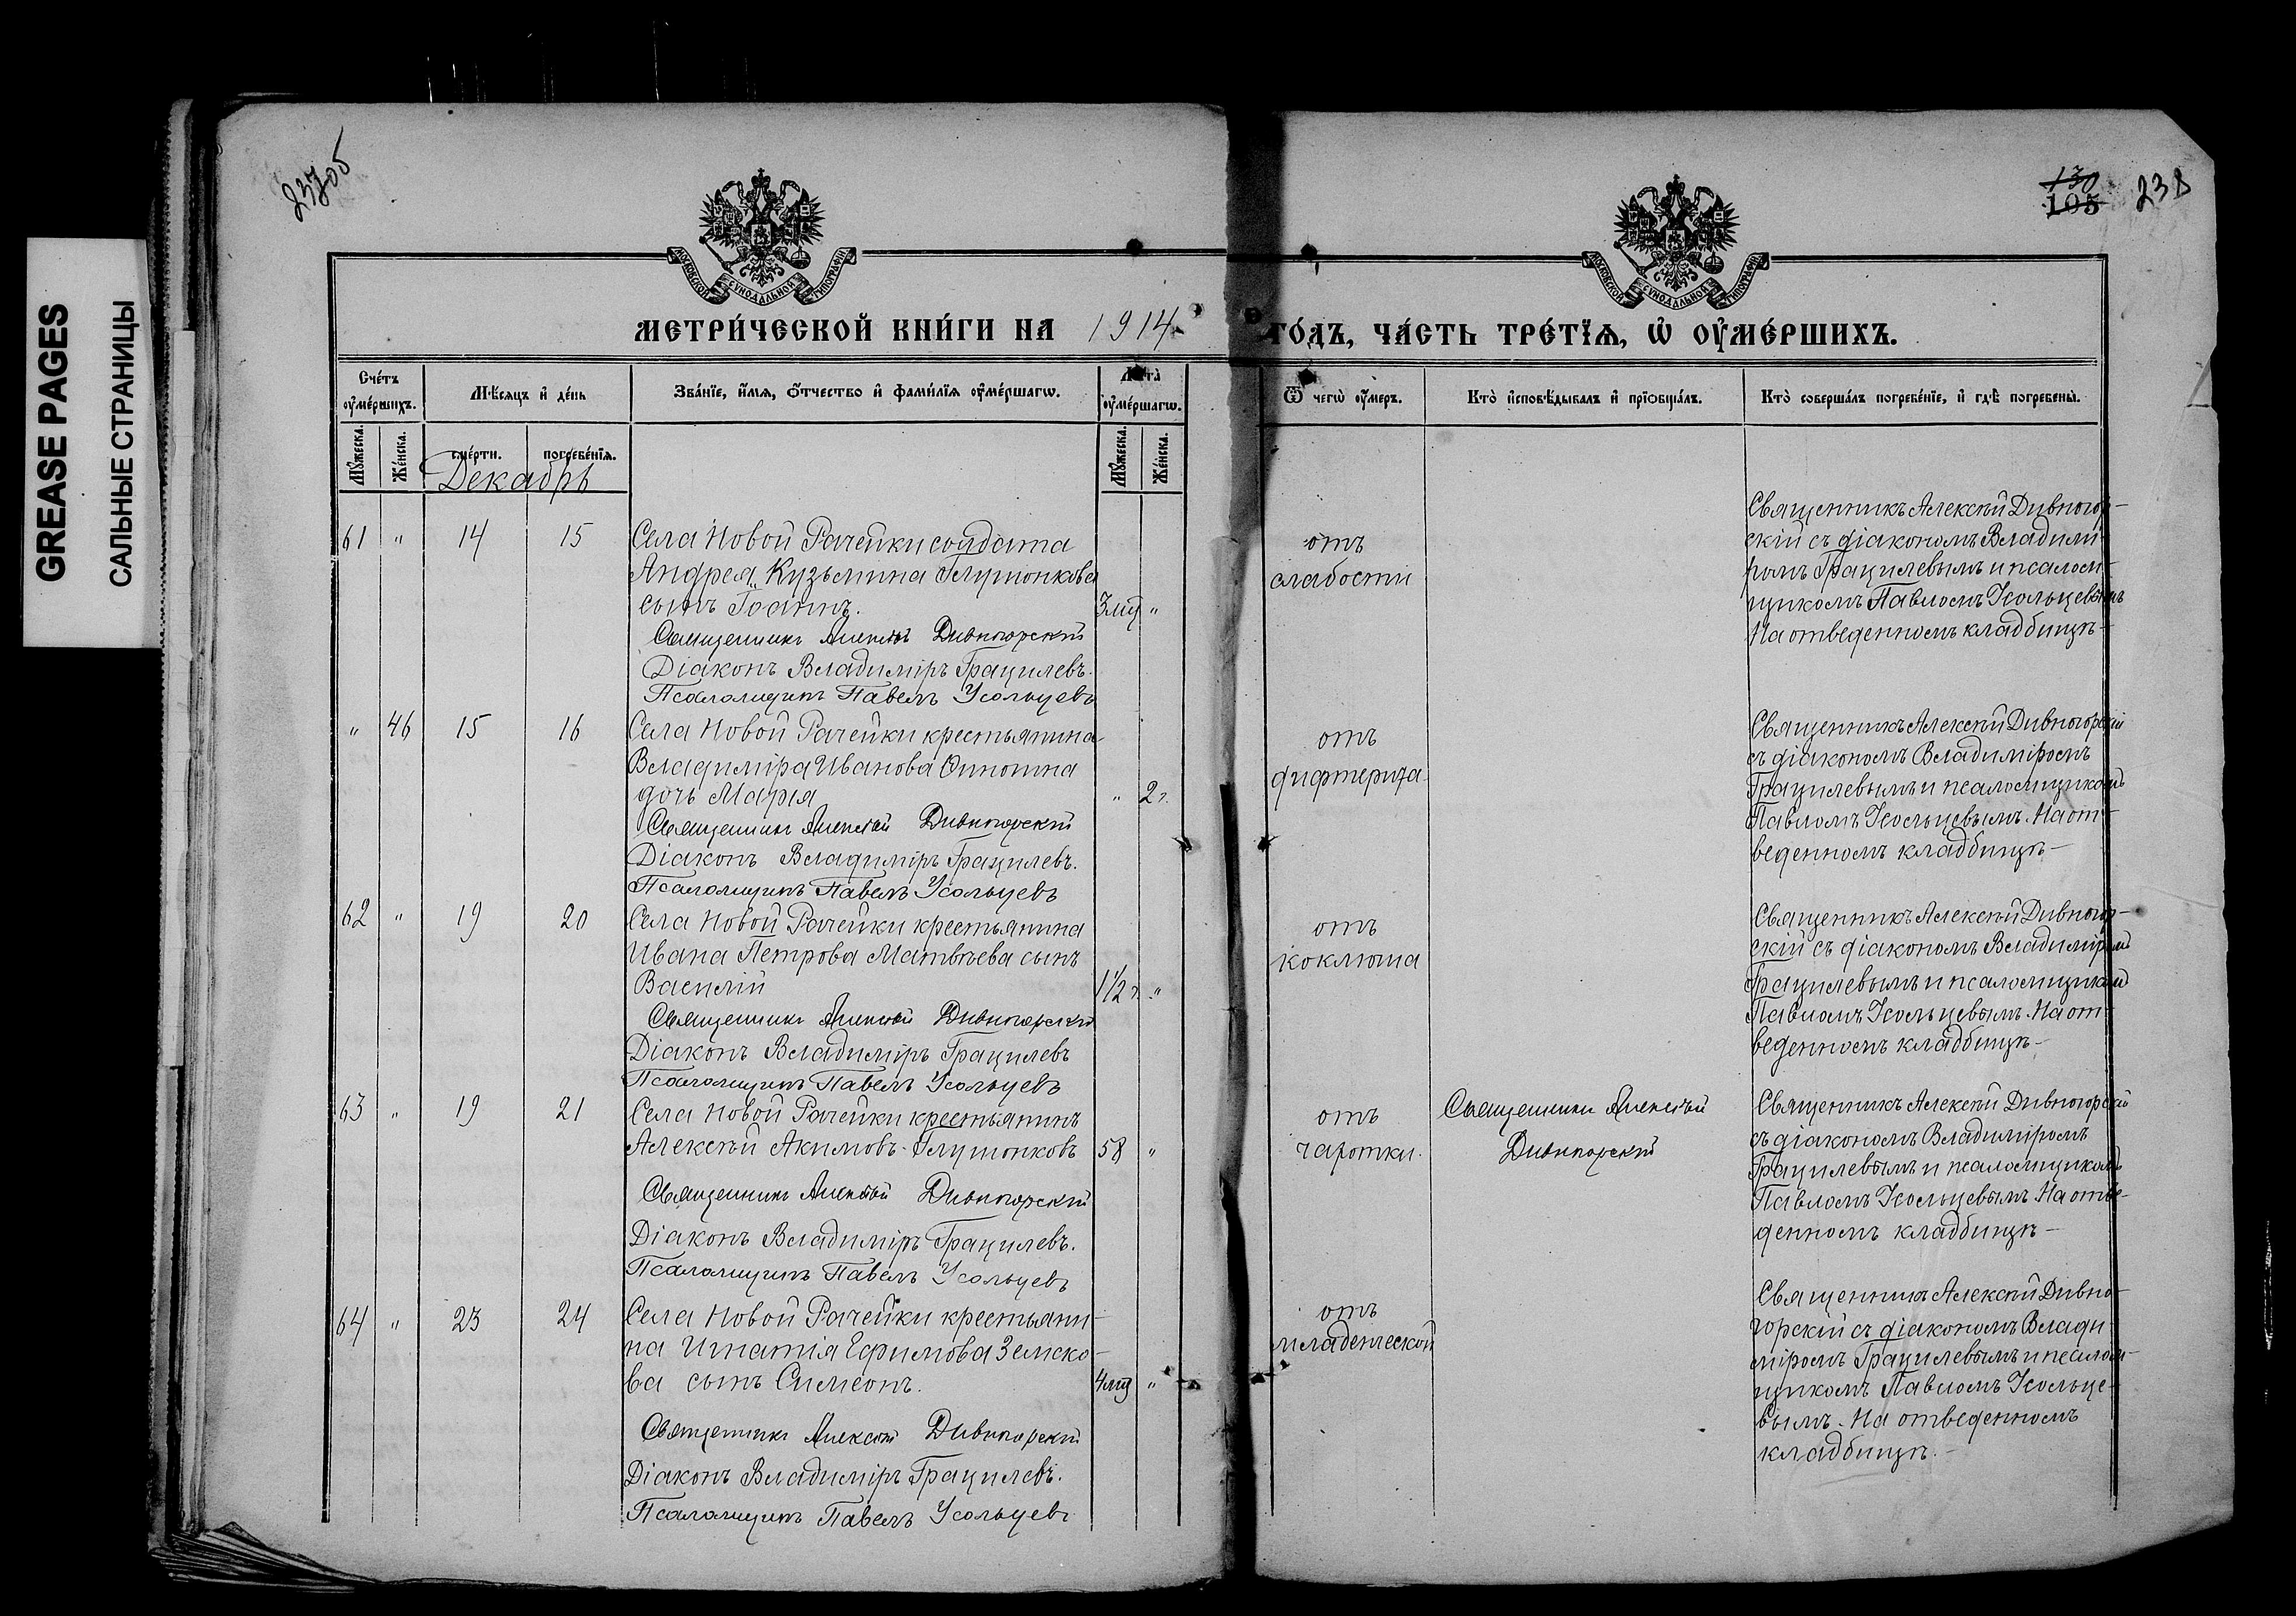 GREASE PAGES
САЛЬНЫЕ СТРАНИЦЫ
237об
130
105
238
МОСКОВСКОЙ СѴНОДАЛЬНОЙ ТИПОГРАФІИ
МОСКОВСКОЙ СѴНОДАЛЬНОЙ ТИПОГРАФІИ
МЕТРИ́ЧЕСКОЙ КНИ́ГИ НА 1914
ГО́ДЪ, ЧА́СТЬ ТРЕ́ТЇѦ, Ѡ҆ ОУ҆МЕ́РШИХЪ.
Сче́тъ оу҆ме́ршихъ.
Мѣ́сяцъ и҆ де́нь
Зва́нїе, и҆́мѧ, ѻ҆́тчество и҆ фами́лїѧ оу҆ме́ршагѡ.
Лѣ́та оу҆ме́ршагѡ.
Ѿ чегѡ̀ оу҆́меръ.
Кто̀ и҆сповѣ́дывалъ и҆ прїѡбща́лъ.
Кто̀ соверша́лъ погребе́нїе, и҆ гдѣ̀ погребены̀.
Мꙋ́жеска.
Же́нска.
сме́рти.
погребе́нїѧ.
Мꙋ́жеска.
Же́нска.
Декабрь
61 " 14 15 Села Новой Рачейки солдата
Андрея Кузьмина Глушонкова
сынъ Іоаннъ. 3 мц "
Священникъ Алексѣй Дивногорскій
Діаконъ Владиміръ Грацилевъ.
Псаломщикъ Павелъ Усольцевъ
отъ
слабости
Священникъ Алексѣй Дивногор-
скій съ діакономъ Владимі
ромъ Грацилевымъ и псалом-
щикомъ Павломъ Усольцевымъ
На отведенномъ кладбищѣ-
" 46 15 16 Села Новой Рачейки крестьянина
Владиміра Иванова
дочь Марія " 2 г.
Священникъ Алексѣй Дивногорскій
Діаконъ Владиміръ Грацилевъ.
Псаломщикъ Павелъ Усольцевъ
отъ
дифтерита
Священникъ Алексѣй Дивногорскій
съ діакономъ Владиміромъ
Грацилевымъ и псаломщикомъ
Павломъ Усольцевымъ. На от-
веденномъ кладбищѣ-
62 " 19 20 Села Новой Рачейки крестьянина
Ивана Петрова Матвѣева сынъ
Василій 1 1/2 г. "
Священникъ Алексѣй Дивногорскій
Діаконъ Владиміръ Грацилевъ
Псаломщикъ Павелъ Усольцевъ
отъ
коклюша
Священникъ Алексѣй Дивногор-
скій съ діакономъ Владиміромъ
Грацилевымъ и псаломщикомъ
Павломъ Усольцевымъ. На от-
веденномъ кладбищѣ-
63 " 19 21 Села Новой Рачейки крестьянинъ
Алексѣй Акимовъ Глушонковъ 58 "
Священникъ Алексѣй Дивногорскій
Діаконъ Владиміръ Грацилевъ.
Псаломщикъ Павелъ Усольцевъ
отъ
чахотки.
Священникъ Алексѣй
Дивногорскій
Священникъ Алексѣй Дивногорскій
съ діакономъ Владиміромъ
Грацилевымъ и псаломщикомъ
Павломъ Усольцевымъ На отве-
денномъ кладбищѣ-
64 " 23 24 Села Новой Рачейки крестьяни-
на Игнатія Ефимова Земско-
ва сынъ Симеонъ. 4 мц "
Священникъ Алексѣй Дивногорскій
Діаконъ Владиміръ Грацилевъ.
Псаломщикъ Павелъ Усольцевъ
отъ
младенческой
Священникъ Алексѣй Дивно-
горскій съ діакономъ Влади
міромъ Грацилевымъ и псалом-
щикомъ Павломъ Усольце-
вымъ. На отведенномъ
кладбищѣ.-